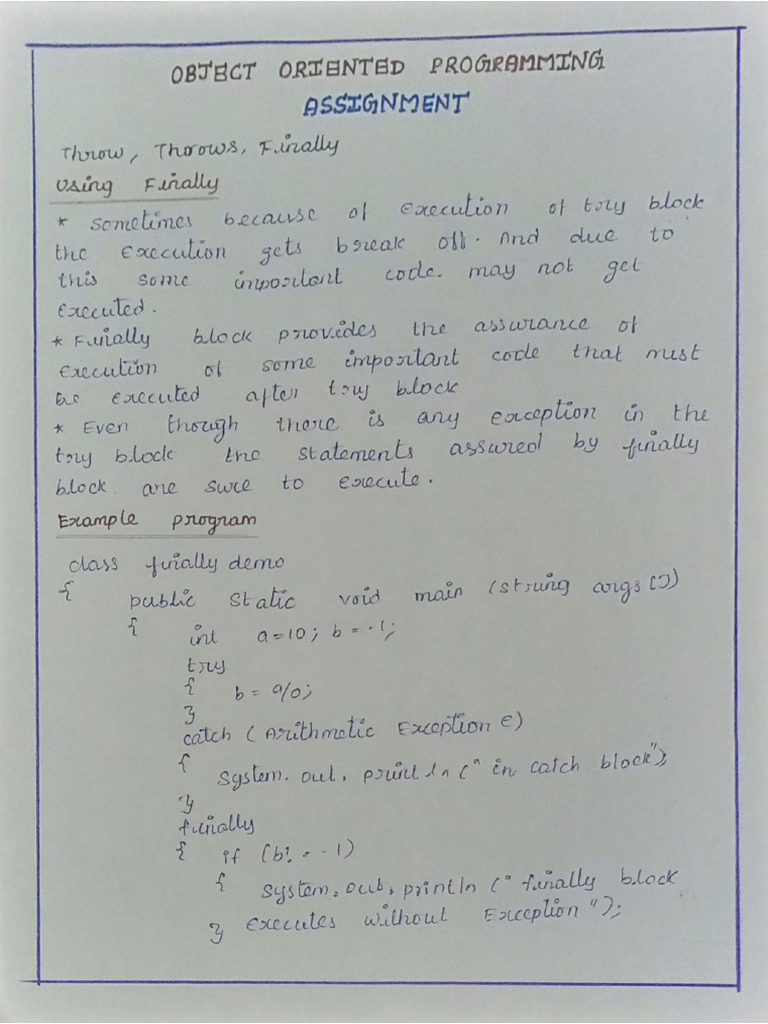 OBJECT ORIENTED PROGRAMMING
ASSIGNMENT
Throw, Throws, Finally
Using Finally
* Sometimes because of execution of try block
the execution gets break off. And due to
this some important code. may not get
executed.
* Finally block provides the assurance of
execution of some important code that must
be executed after try block
* Even though there is any exception in the
try block the statements assured by finally
block. are sure to execute.
Example program
class finally demo
{ public static void main (string args [])
{ int a=10; b=-1;
try
{ b = a/0;
}
catch (Arithmetic Exception e)
{
System. out. print ln (" in catch block");
}
finally
{ if (b! = -1)
{ System. out. println (" finally block
} executes without Exception ");